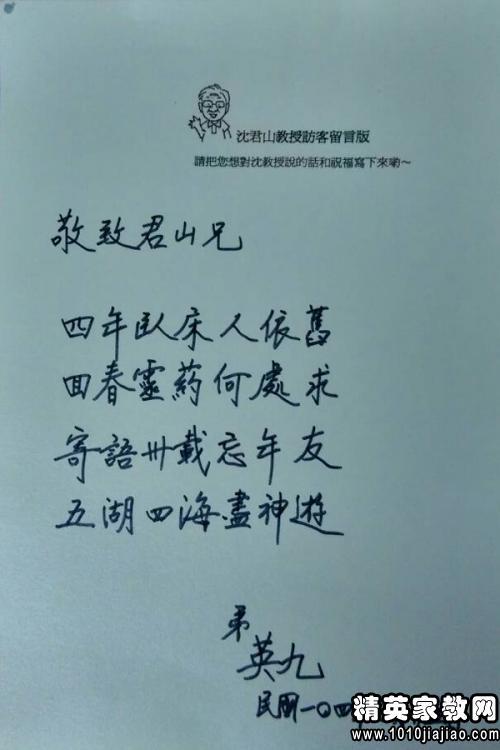 沈君山教授訪客留言版
請把您想對沈教授說的話和祝福寫下來喲～
敬致君山兄
四年臥床人依舊
回春靈葯何處求
寄語卅載忘年友
五湖四海盡神遊
弟
英九
民國一〇四
精英家教网
www.1010jiajiao.com